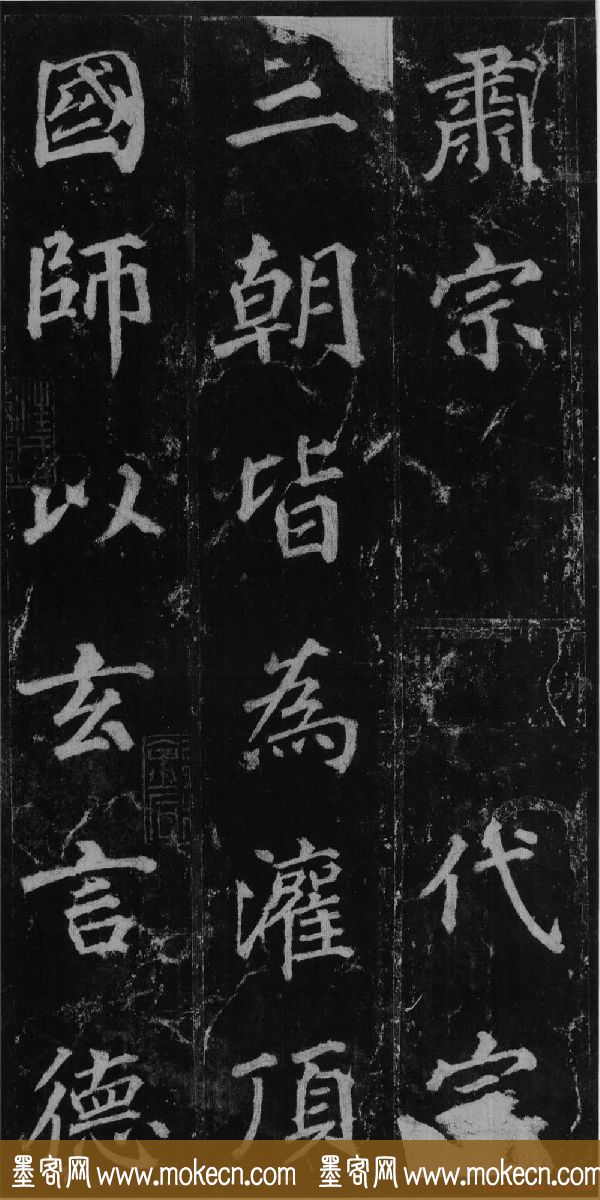 肅宗 代宗
三朝皆為灌頂
國師以玄言德
墨客网 www.mokecn.com 墨客网 www.mokecn.com